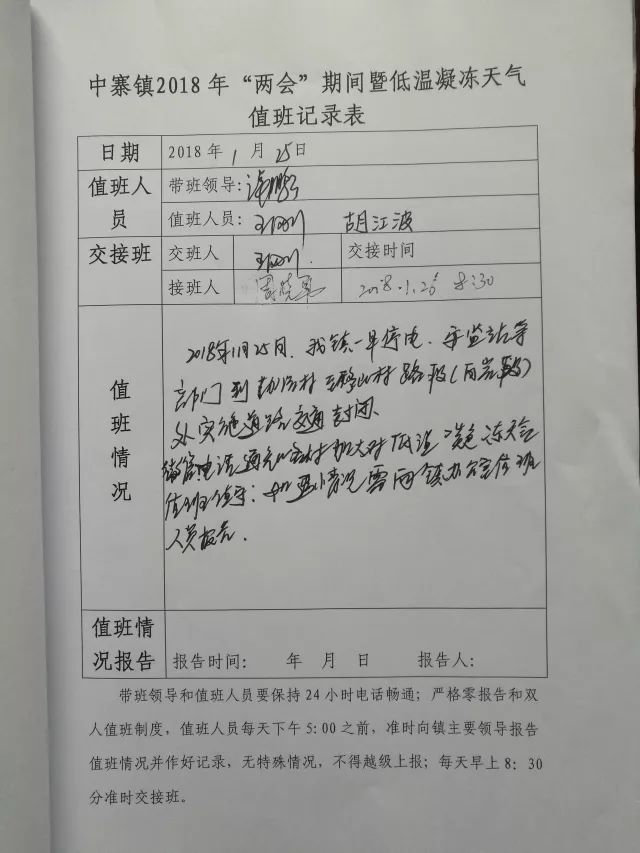 中寨镇2018年“两会”期间暨低温凝冻天气
值班记录表
日期 2018年1月25日
值班人员 带班领导:
值班人员: 胡江波
交接班 交班人 交接时间
接班人 2018.1.26 8:30
值班情况
2018年1月25日，我镇一早停电，安监站等
部门到 村 山村路段
处实施道路交通封闭。
电话通知 村加大对低温 冻天气
值班值守；如 情况需向镇办公室值班
人员报告.
值班情况报告 报告时间： 年 月 日 报告人：
带班领导和值班人员要保持24小时电话畅通；严格零报告和双
人值班制度，值班人员每天下午5:00之前，准时向镇主要领导报告
值班情况并作好记录，无特殊情况，不得越级上报；每天早上8：30
分准时交接班。